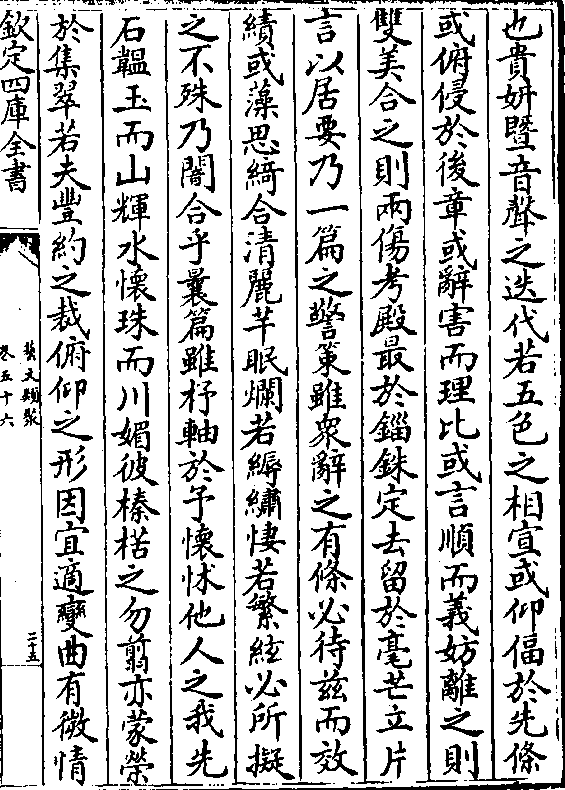 也貴妍暨音聲之迭代若五色之相宣或仰偪於先條
或俯侵於後章或辭害而理比或言順而義妨離之則
雙美合之則兩傷考殿最於錙銖定去留於毫芒立片
言以居要乃一篇之警策雖衆辭之有條必待兹而效
績或藻思綺合清麗芊眠爛若縟繡悽若繁絃必所擬
之不殊乃闇合乎曩篇雖杼軸於予懷怵他人之我先
石韞玉而山輝水懷珠而川媚彼榛楛之勿翦亦蒙榮
於集翠若夫豐約之裁俯仰之形因宜適變曲有微情
欽定四庫全書
藝文類聚
卷五十六
二十五